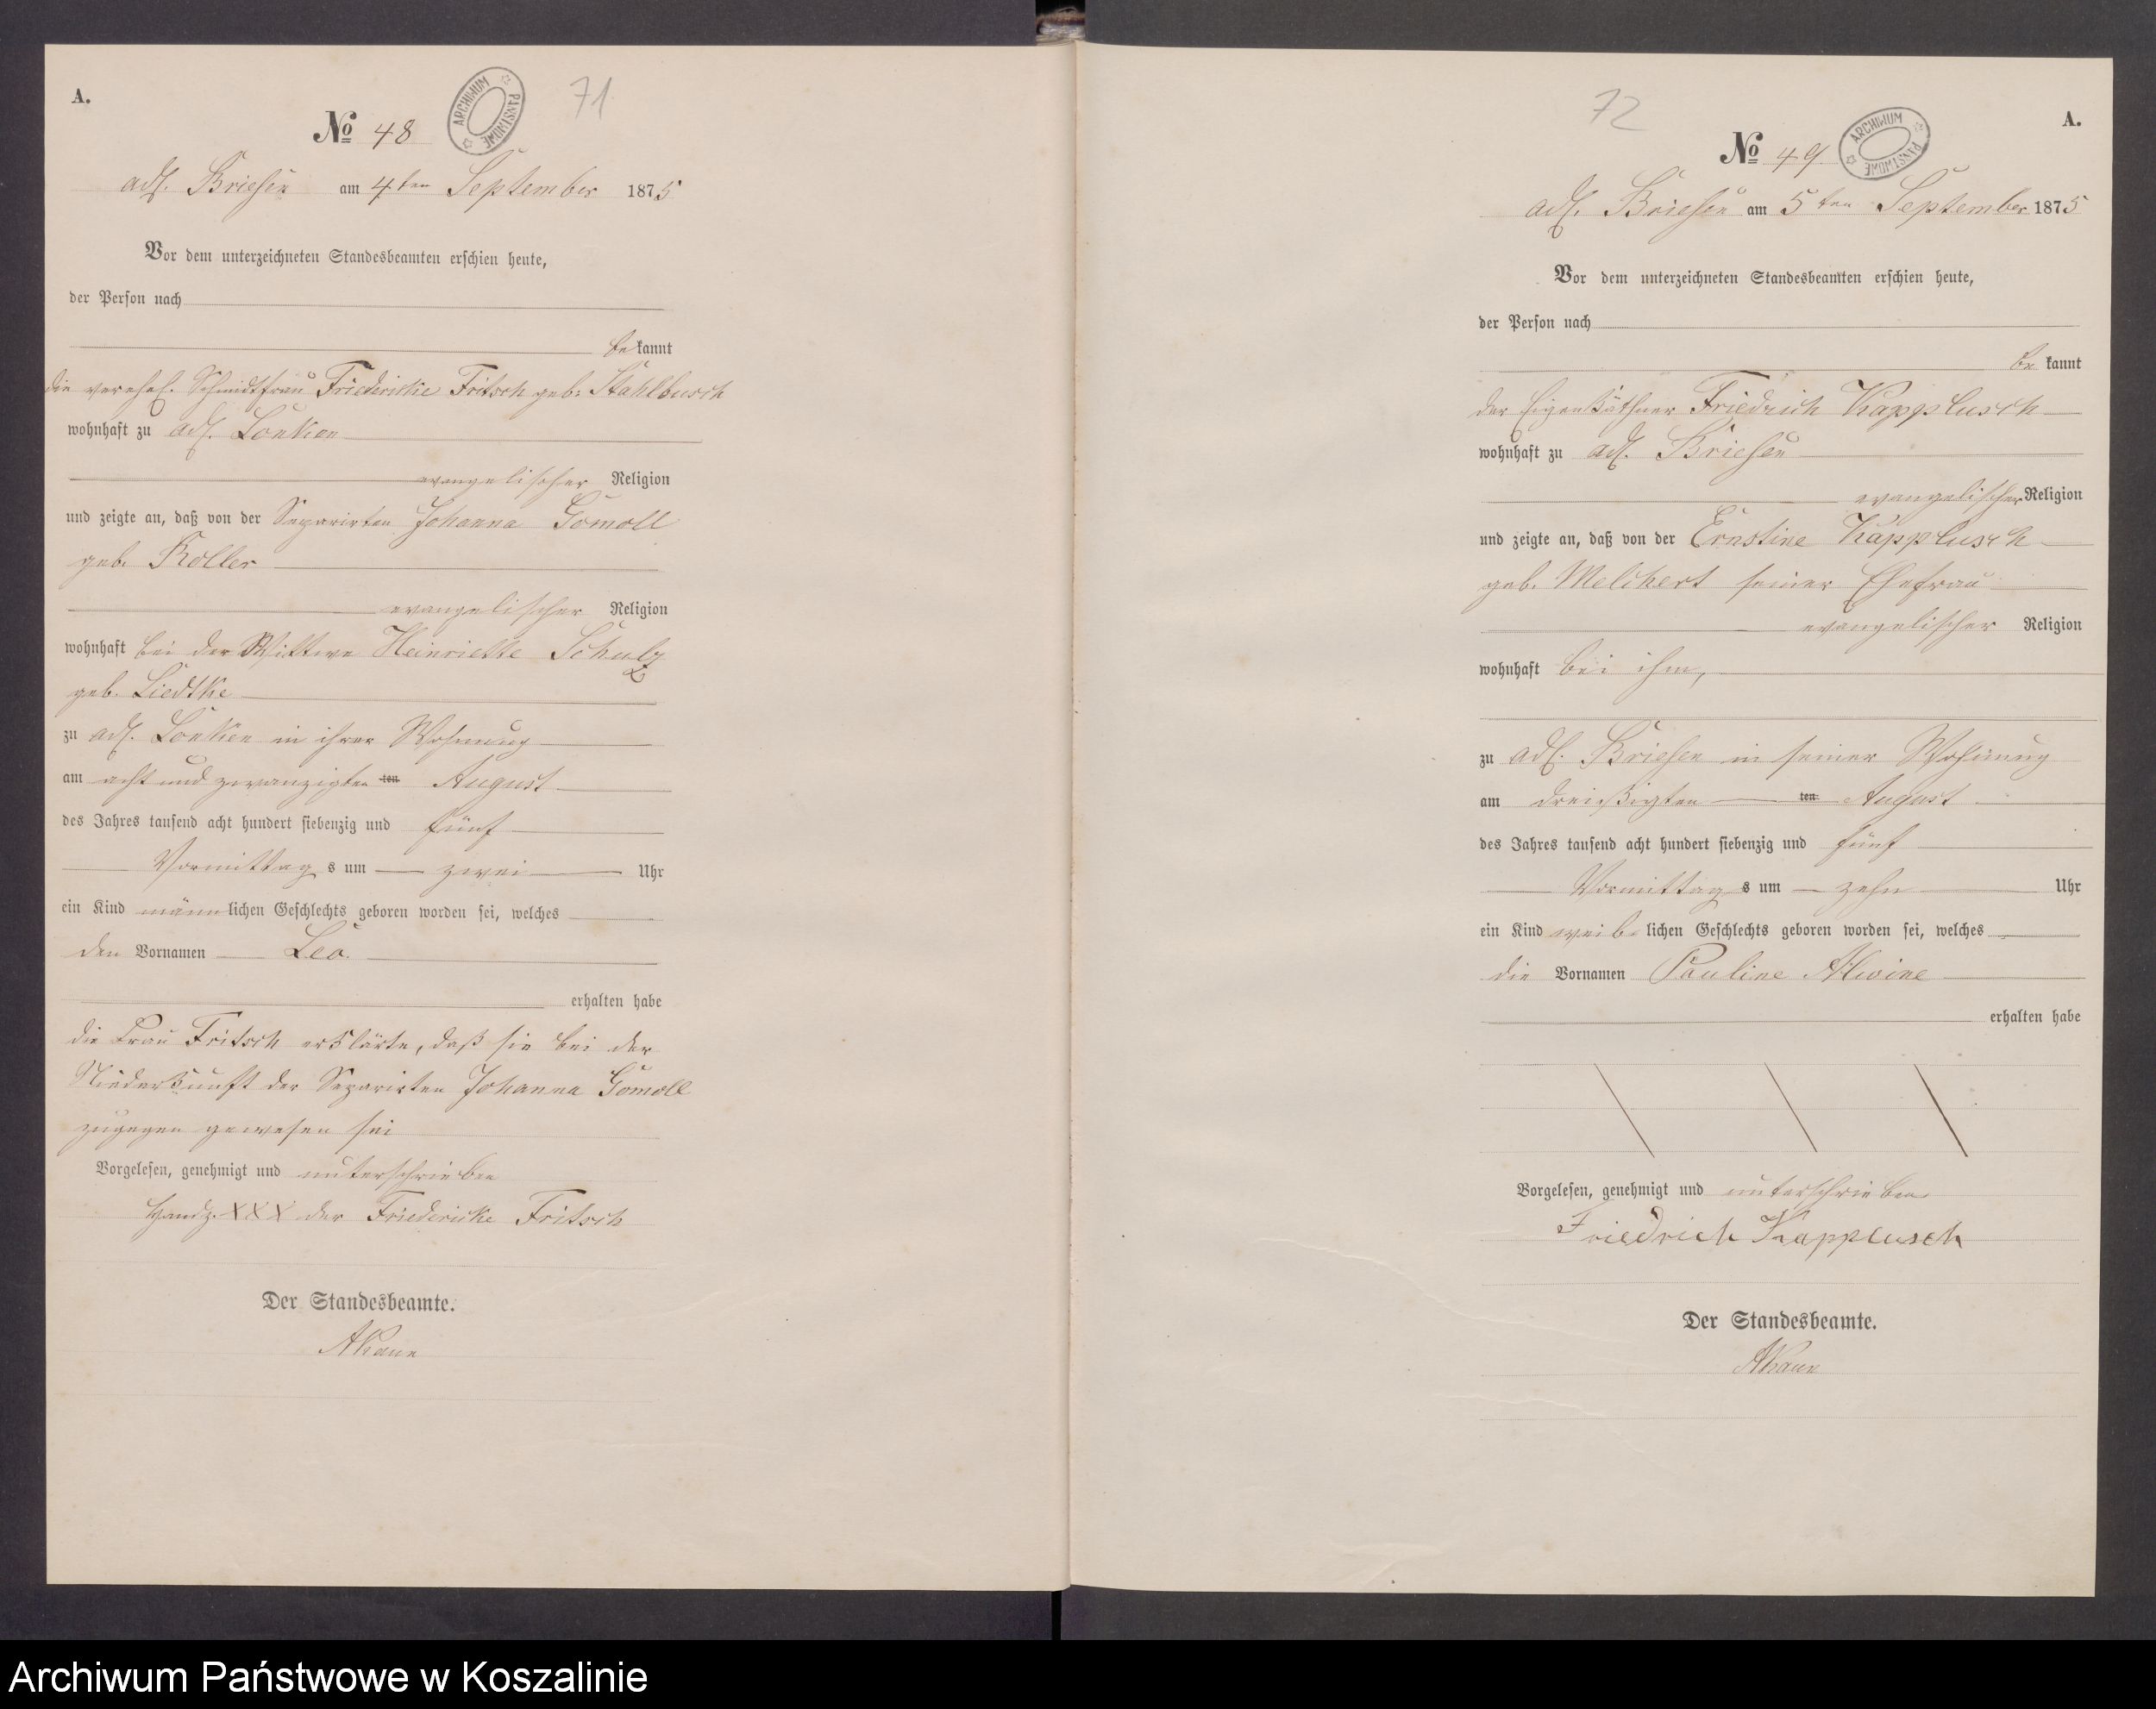 A.
71
No 48
ARCHIWUM PAŃSTWOWE
adl. Briesen am 4ten September 1875
Vor dem unterzeichneten Standesbeamten erschien heute,
der Person nach
bekannt
die verehel. Schmidtfrau Friedericke Fritsch geb. Stahlbusch
wohnhaft zu adl. Lonken
evangelischer Religion
und zeigte an, daß von der Separirten Johanna Gomoll
geb. Koller
evangelischer Religion
wohnhaft bei der Wittwe Heinriette Schulz
geb. Liedtke
zu adl. Lonken in ihrer Wohnung
am acht und zwanzigten ten August
des Jahres tausend acht hundert siebenzig und fünf
Vormittag s um zwei Uhr
ein Kind männlichen Geschlechts geboren worden sei, welches
den Vornamen Leo.
erhalten habe
die Frau Fritsch erklärte, daß sie bei der
Niederkunft der Separirten Johanna Gomoll
zugegen gewesen sei
Vorgelesen, genehmigt und unterschrieben
Handz. XXX der Friedericke Fritsch
Der Standesbeamte.
72
A.
No 49.
ARCHIWUM PAŃSTWOWE
adl. Briesen am 5ten September 1875
Vor dem unterzeichneten Standesbeamten erschien heute,
der Person nach
bekannt
der Eigenkäthner Friedrich Kapplusch
wohnhaft zu adl. Briesen
evangelischer Religion
und zeigte an, daß von der Ernstine Kapplusch
geb. Melchert seiner Ehefrau
evangelischer Religion
wohnhaft bei ihm,
zu adl. Briesen in seiner Wohnung
am dreißigten ten August
des Jahres tausend acht hundert siebenzig und fünf
Vormittag s um zehn Uhr
ein Kind weiblichen Geschlechts geboren worden sei, welches
die Vornamen Pauline Alwine
erhalten habe
Vorgelesen, genehmigt und unterschrieben
Friedrich Kapplusch
Der Standesbeamte.
Archiwum Państwowe w Koszalinie